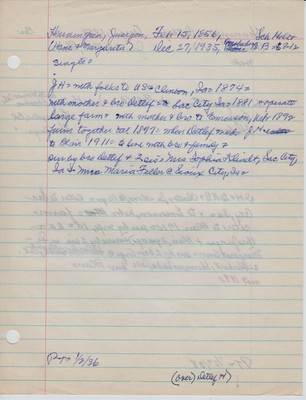 Heuermann, Juergen, Feb 15, 1856, Sch Holst
(Hans & Margareta) Dec 27, 1935, B = 2-12
single =
JH = with folks to US = Clinton, Ia = 1874 =
with mother & bro Detlef = Sac City, Ia = 1881 + operate
large farm = with mother & bro to Tennyson, Neb 1892
farm together til 1897 when Detlef med. JH
to Blair 1911 = to live with bro & family =
sur by bro Detlef & 2 sis = Mrs Sophia Klindt, Sac City,
Ia & Mrs Maria Feller @ Sioux City, Ia =
P-T = 1/2/36
(over) Detlef H)